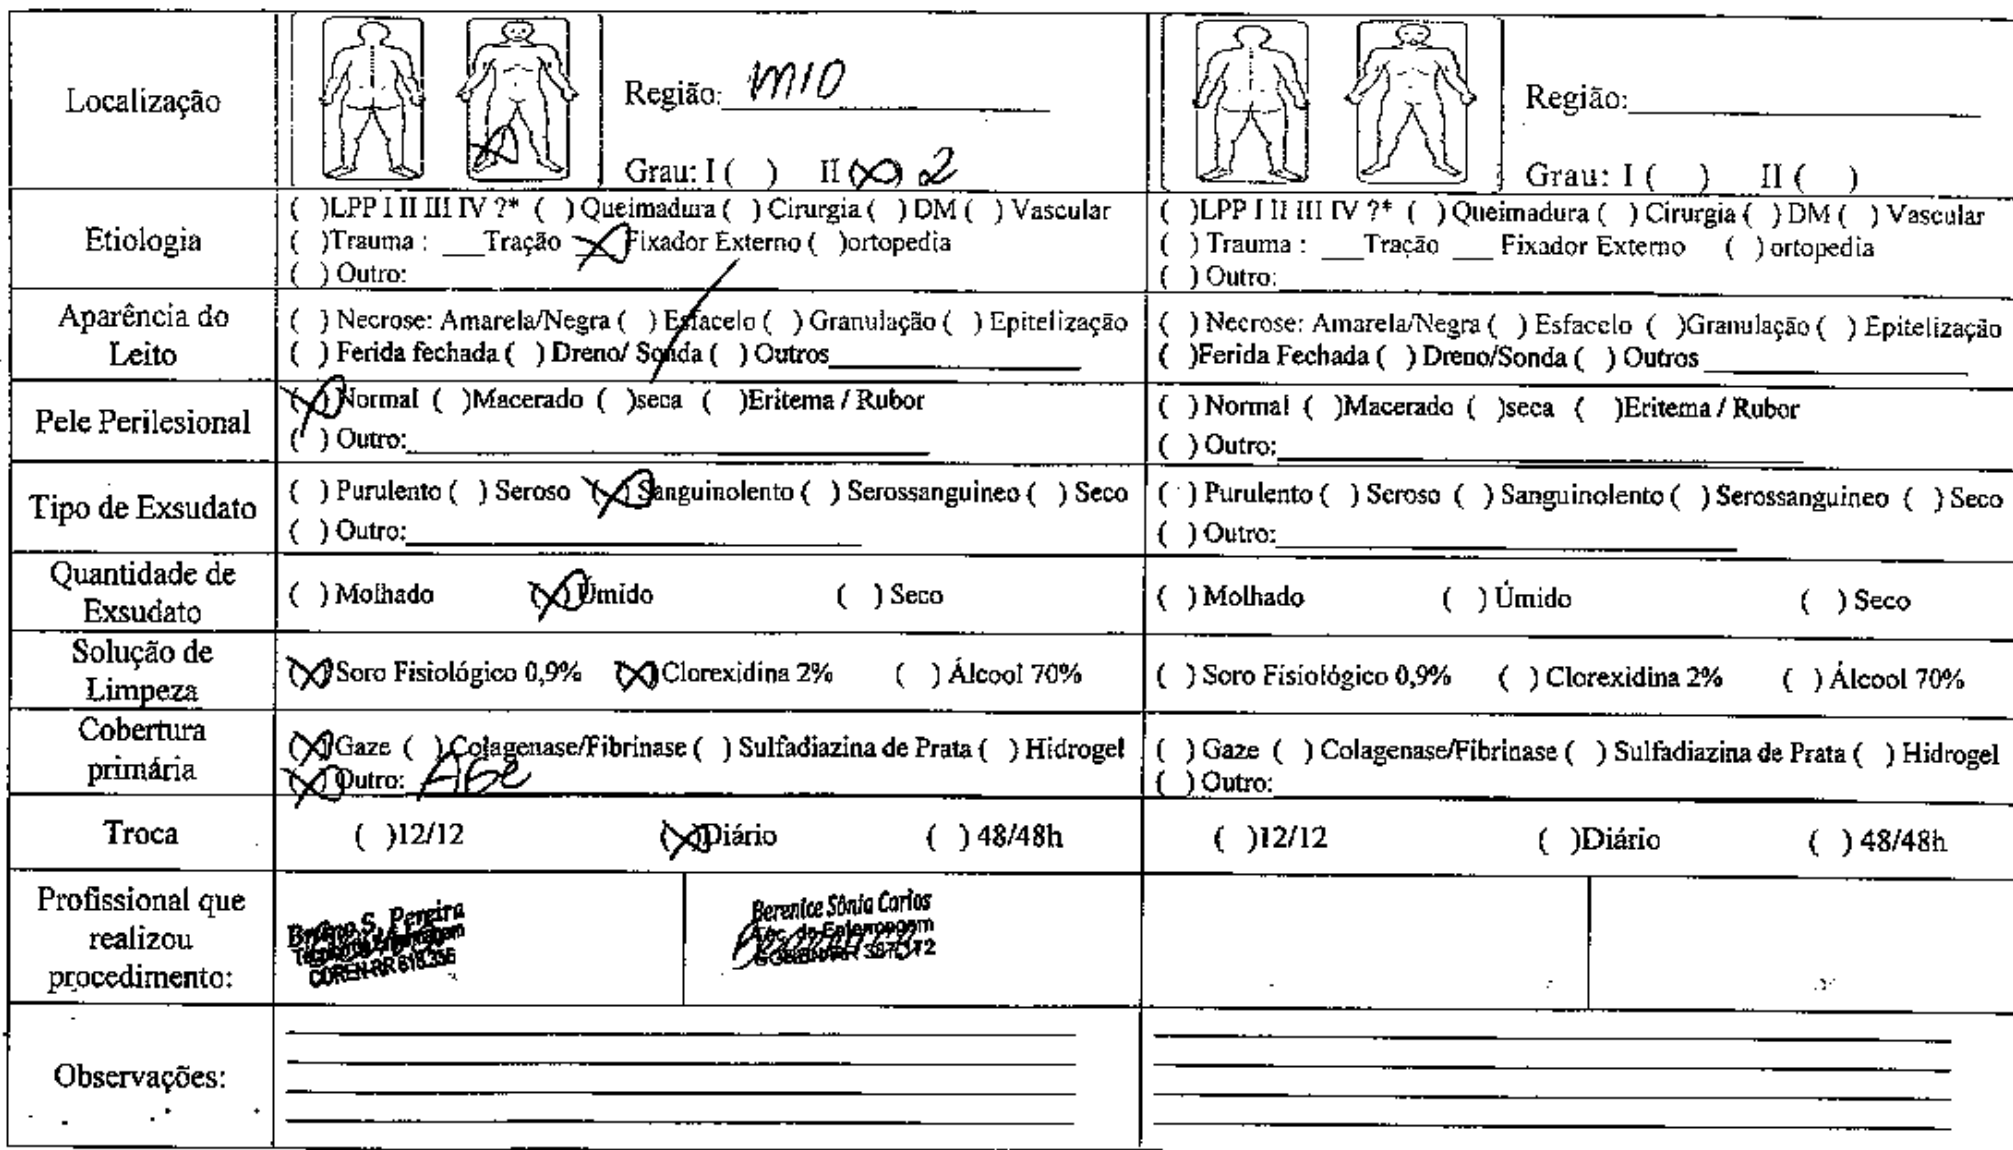 Localização
Região: MID
Grau: I ( ) II (X) 2
Região:
Grau: I ( ) II ( )
Etiologia
( )LPP I II III IV ?* ( ) Queimadura ( ) Cirurgia ( ) DM ( ) Vascular
( )Trauma : ___Tração _X_Fixador Externo ( )ortopedia
( ) Outro:
( )LPP I II III IV ?* ( ) Queimadura ( ) Cirurgia ( ) DM ( ) Vascular
( ) Trauma : ___Tração ___ Fixador Externo ( ) ortopedia
( ) Outro:
Aparência do
Leito
( ) Necrose: Amarela/Negra ( ) Esfacelo ( ) Granulação ( ) Epitelização
( ) Ferida fechada ( ) Dreno/ Sonda ( ) Outros
( ) Necrose: Amarela/Negra ( ) Esfacelo ( )Granulação ( ) Epitelização
( )Ferida Fechada ( ) Dreno/Sonda ( ) Outros
Pele Perilesional
(X) Normal ( )Macerado ( )seca ( )Eritema / Rubor
( ) Outro:
( ) Normal ( )Macerado ( )seca ( )Eritema / Rubor
( ) Outro:
Tipo de Exsudato
( ) Purulento ( ) Seroso (X) Sanguinolento ( ) Serossanguineo ( ) Seco
( ) Outro:
( ) Purulento ( ) Seroso ( ) Sanguinolento ( ) Serossanguineo ( ) Seco
( ) Outro:
Quantidade de
Exsudato
( ) Molhado (X) Úmido ( ) Seco
( ) Molhado ( ) Úmido ( ) Seco
Solução de
Limpeza
(X) Soro Fisiológico 0,9% (X) Clorexidina 2% ( ) Álcool 70%
( ) Soro Fisiológico 0,9% ( ) Clorexidina 2% ( ) Álcool 70%
Cobertura
primária
(X) Gaze ( ) Colagenase/Fibrinase ( ) Sulfadiazina de Prata ( ) Hidrogel
(X) Outro: AGE
( ) Gaze ( ) Colagenase/Fibrinase ( ) Sulfadiazina de Prata ( ) Hidrogel
( ) Outro:
Troca
( )12/12 (X)Diário ( ) 48/48h
( )12/12 ( )Diário ( ) 48/48h
Profissional que
realizou
procedimento:
S. Pereira
COREN-RR
Berenice Sônia Carlos
Téc. de Enfermagem
Observações: